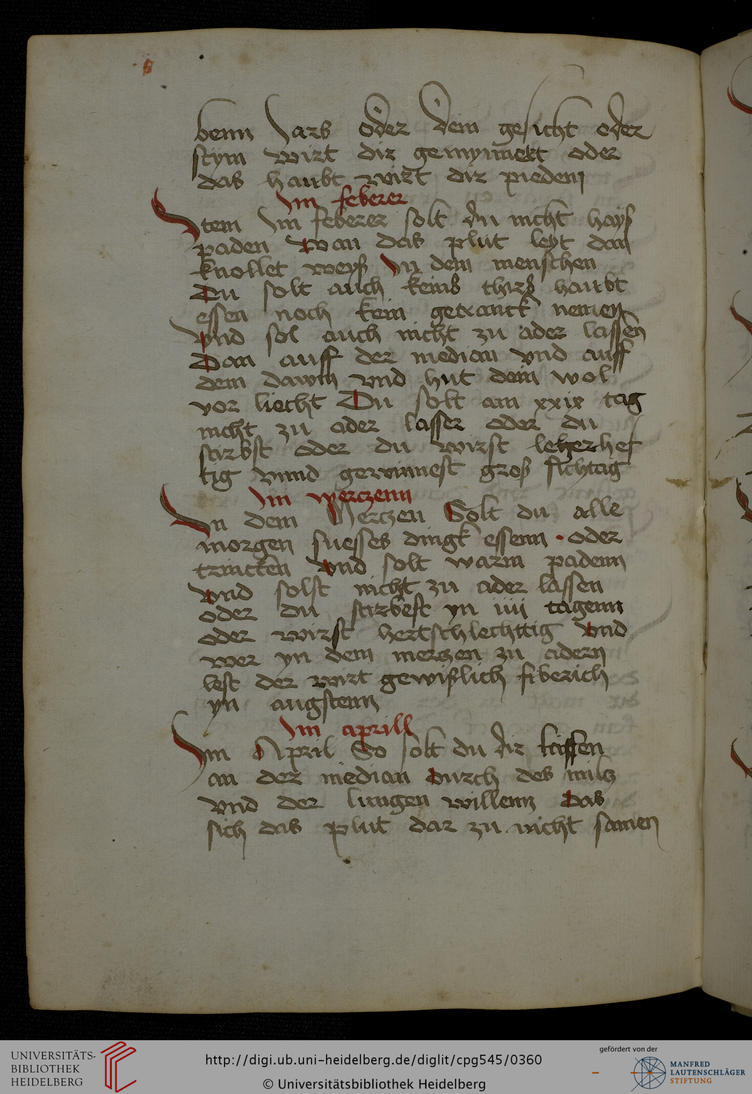 benn Jars oder dem gesicht oder
stym wirt dir gemynnert oder
das haubt wirt dir pidem
Im feberer
Item Im feberer solt du nicht hayß
paden wan das plut leyt dan
knollet weyß In dem menschen
Du solt auch keins thirs haubt
essen noch kein getranck nemen
vnd sol auch nicht zu ader lassen
Dan auff der median vnd auff
dem dawm vnd hut dein wol
vor liecht Du solt am xxix tag
nicht zu ader lasser oder du
stirbst oder du wirst leberhef
tig vnnd gewinnest groß sichtag
Im merczenn
In dem Merczen Solt du alle
morgen suesses dingk essenn oder
trincken vnd solt warm padenn
vnd solst nicht zu ader lassen
oder du stirbest yn iiii tagenn
oder wirst hertschlechttig vnd
wer yn dem merczen zu adern
lest der wirt gewißlich fiberich
yn augstenn
Im aprill
Im April So solt du dir lassen
an der median Durch des milcz
vnd der lungen willenn Das
sich das plut dar zu nicht samen
UNIVERSITÄTS-
BIBLIOTHEK
HEIDELBERG
http://digi.ub.uni-heidelberg.de/diglit/cpg545/0360
© Universitätsbibliothek Heidelberg
gefördert von der
MANFRED
LAUTENSCHLÄGER
STIFTUNG